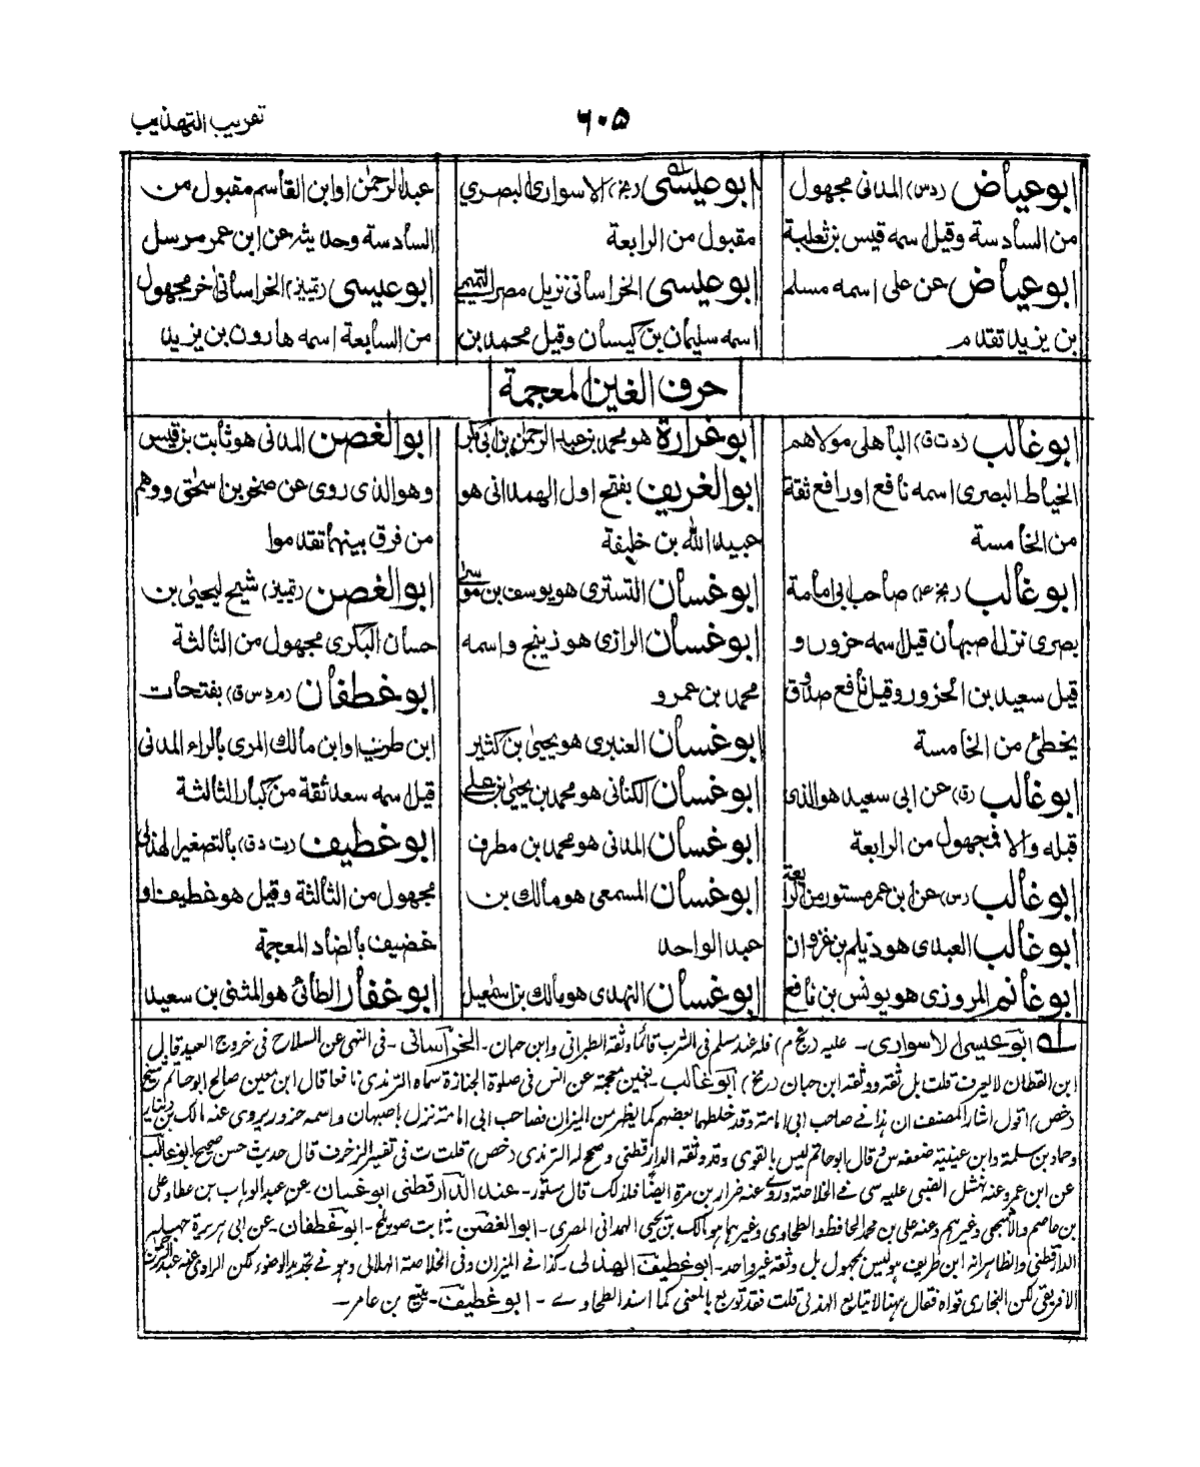 تقريب التهذيب
٦٠٥
ابوعياض (دس) المدنى مجهول
من السادسة وقيل اسمه قيس بن ثعلبة
ابوعياض عن على اسمه مسلم
بن يزيد تقدم
ابوعيسى (بخ) الاسوارى البصري
مقبول من الرابعة
ابوعيسى الخراسانى نزيل مصر التميمى
اسمه سليمان بن كيسان وقيل محمد بن
عبدالرحمن او ابن القاسم مقبول من
السادسة وحديثه عن ابن عمر مرسل
ابوعيسى (تمييز) الخراسانى اخر مجهول
من السابعة اسمه هارون بن يزيد
حرف الغين المعجمة
ابوغالب (دت ق) الباهلى مولاهم
الخياط البصرى اسمه نافع او رافع ثقة
من الخامسة
ابوغالب (بخ ٤) صاحب ابى امامة
بصرى نزل اصبهان قيل اسمه حزور و
قيل سعيد بن الحزور وقيل نافع صدوق
يخطئ من الخامسة
ابوغالب (ق) عن ابى سعيد هو الذى
قبله والا فمجهول من الرابعة
ابوغالب (س) عن ابن عمر مستور من الرابعة
ابوغالب العبدى هو ديلم بن غزوان
ابوغانم المروزى هو يونس بن نافع
ابوغرارة هو محمد بن عبد الرحمن بن ابى بكر
ابو الغريف بفتح اول الهمدانى هو
عبيد الله بن خليفة
ابوغسان التسترى هو يوسف بن موسى
ابوغسان الرازى هو زنيج واسمه
محمد بن عمرو
ابوغسان العنبرى هو يحيى بن كثير
ابوغسان الكنانى هو محمد بن يحيى بن على
ابوغسان المدنى هو محمد بن مطرف
ابوغسان المسمعى هو مالك بن
عبد الواحد
ابوغسان النهدى هو مالك بن اسمعيل
ابو الغصن المدنى هو ثابت بن قيس
وهو الذى روى عن صخر بن اسحق ووهم
من فرق بينهما تقدموا
ابو الغصن (تمييز) شيخ ليحيى بن
حسان البكرى مجهول من الثالثة
ابوغطفان (م د س ق) بفتحات
ابن طريف او ابن مالك المرى بالراء المدنى
قيل اسمه سعد ثقة من كبار الثالثة
ابوغطيف (ت د ق) بالتصغير الهذلى
مجهول من الثالثة وقيل هو غطيف او
غضيف بالضاد المعجمة
ابوغفار الطائى هو المثنى بن سعيد
ابوعيسى الاسوارى - عليه (بخ م) فله عند مسلم فى الشرب قائما وثقه الطبرانى وابن حبان - الخراسانى - فى النهى عن السلاح فى خروج العيد قال
ابن القطان لا يعرف قلت بل ثقة ووثقه ابن حبان (بخ) ابوغالب - بغين معجمة عن انس فى صلوة الجنازة سماه الترمذى نافعا قال ابن معين صالح ابو حاتم شيخ
(خص) اقول اشار المصنف ان هذا فى صاحب ابى امامة وقد خلطها بعضهم كما يظهر من الميزان فصاحب ابى امامة نزل باصبهان واسمه حزور يروى عنه مالك بن دينار
وحماد بن سلمة وابن عيينة ضعفه س قال ابو حاتم ليس بالقوى وقد وثقه الدارقطنى وصحح له الترمذى (خص) قلت ت فى تفسير الزخرف قال حديث حسن صحيح ابوغالب
عن ابن عمر وعنه نهشل الضبى عليه سى فى الخلاصة وروى عنه ضرار بن مرة ايضا فلذلك قال مستور - عند الدارقطنى ابوغسان عن عبد الوهاب بن عطاء وعلى
بن عاصم والاشجعى وغيرهم وعنه على بن محمد الحافظ والطحاوى وغيرهما هو مالك بن يحيى الهمدانى المصرى - ابو الغصن - ثابت صويلح - ابوغطفان - عن ابى هريرة جهله
الدارقطنى والظاهر انه ابن طريف هو ليس بمجهول بل وثقه غير واحد - ابوغطيف الهذلى - كذا فى الميزان وفى الخلاصة الهلالى وهو فى تجديد الوضوء لكن الراوى عنه عبد الرحمن
الافريقى لكن البخارى قواه فقال ههنا لا يتابع الهذلى قلت فقد توبع بالمعنى كما اسند الطحاوى - ابوغطيف - بتيع بن عامر -